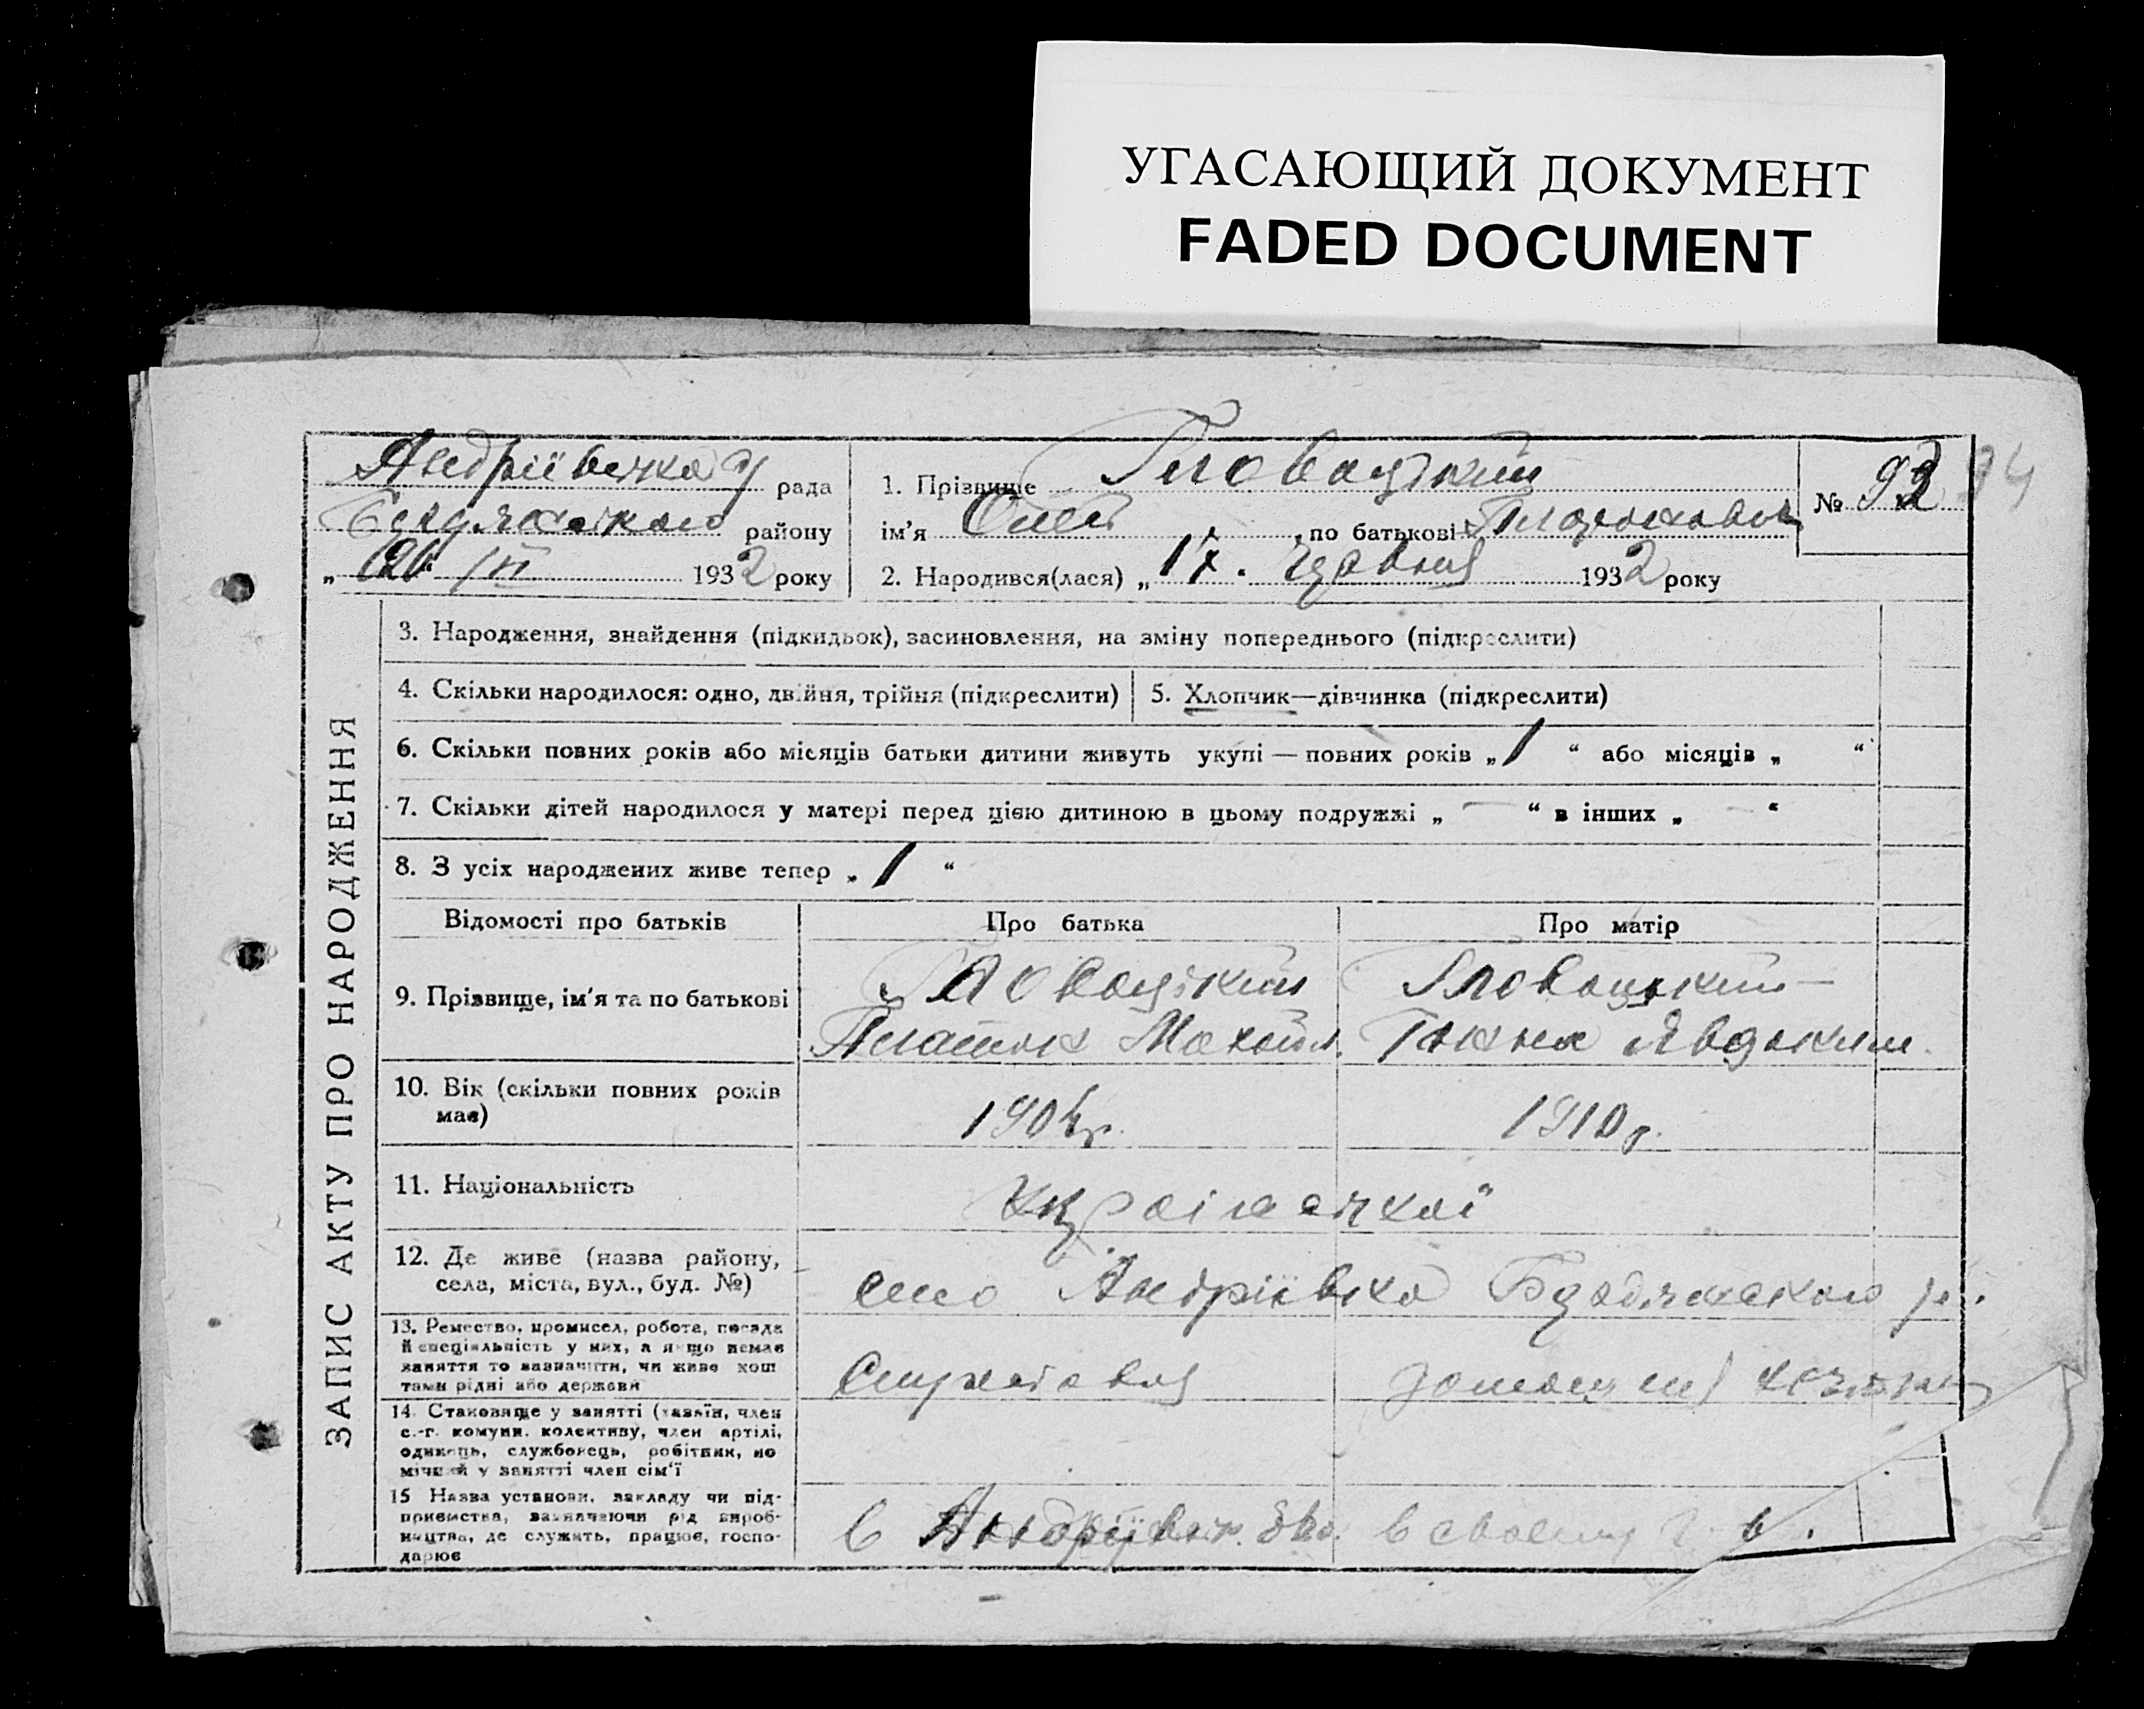 УГАСАЮЩИЙ ДОКУМЕНТ
FADED DOCUMENT
ЗАПИС АКТУ ПРО НАРОДЖЕННЯ
рада
району
193 2 року
1. Прізвище Гловацький
ім'я Олег по батькові
2. Народився(лася) „ 17. Червня 193 2 року
№ 93
94
3. Народження, знайдення (підкидьок), засиновлення, на зміну попереднього (підкреслити)
4. Скільки народилося: одно, двійня, трійня (підкреслити)
5. Хлопчик—дівчинка (підкреслити)
6. Скільки повних років або місяців батьки дитини живуть укупі — повних років „ 1 “ або місяців „ “
7. Скільки дітей народилося у матері перед цією дитиною в цьому подружжі „ — “ в інших „ — “
8. З усіх народжених живе тепер „ 1 “
Відомості про батьків
Про батька
Про матір
9. Прізвище, ім'я та по батькові
Гловацький
Платон
Гловацький —
10. Вік (скільки повних років
має)
1904 р.
1910 р.
11. Національність
12. Де живе (назва району,
села, міста, вул., буд. №)
село Андріївка
13. Ремество, промисел, робота, посада
й спеціяльність у них, а якщо немає
заняття то зазначити, чи живе кош
тами рідні або держави
14. Становище у занятті (хазяїн, член
с.-г. комуни, колективу, член артілі,
одинець, службовець, робітник, по
мічний у занятті член сім'ї
15 Назва установи, закладу чи під-
приємства, зазначаючи рід вироб-
ництва, де служить, працює, госпо-
дарює
в
в своему